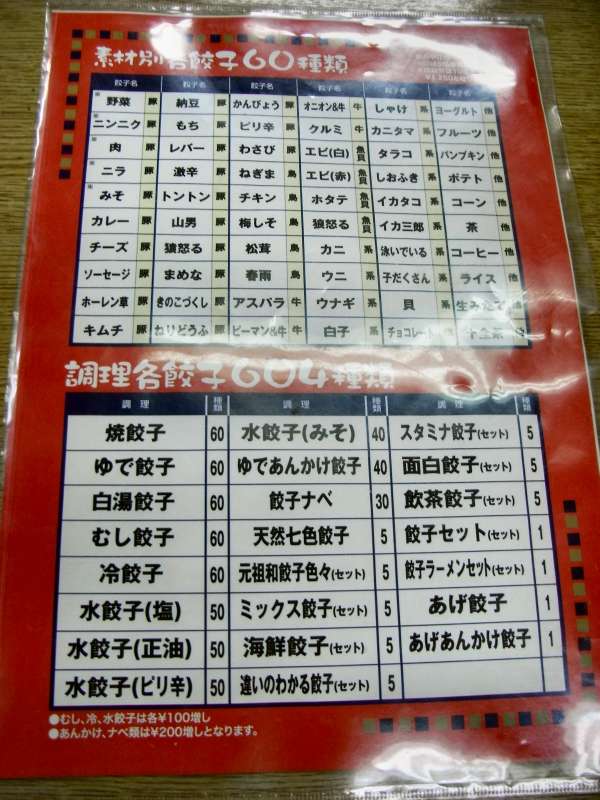 素材別各餃子60種類
餃子名 餃子名 餃子名 餃子名 餃子名 餃子名
野菜 豚 納豆 豚 かんぴょう 豚 オニオン&牛 牛 しゃけ 系 ヨーグルト 他
ニンニク 豚 もち 豚 ピリ辛 豚 クルミ 牛 カニタマ 系 フルーツ 他
肉 豚 レバー 豚 わさび 豚 エビ(白) 魚貝 タラコ 系 パンプキン 他
ニラ 豚 激辛 豚 ねぎま 鳥 エビ(赤) 魚貝 しおふき 系 ポテト 他
みそ 豚 トントン 豚 チキン 鳥 ホタテ 魚貝 イカタコ 系 コーン 他
カレー 豚 山男 豚 梅しそ 鳥 狼怒る 魚貝 イカ三郎 系 茶 他
チーズ 豚 狼怒る 豚 松茸 鳥 カニ 系 泳いでいる 系 コーヒー 他
ソーセージ 豚 まめな 豚 春雨 鳥 ウニ 系 子だくさん 系 ライス 他
ホーレン草 豚 きのこづくし 豚 アスパラ 牛 ウナギ 系 貝 系 生みたて
キムチ 豚 ねりどうふ 豚 ピーマン&牛 牛 白子 系 チョコレート
調理各餃子604種類
調理 種類 調理 種類 調理 種類
焼餃子 60 水餃子(みそ) 40 スタミナ餃子(セット) 5
ゆで餃子 60 ゆであんかけ餃子 40 面白餃子(セット) 5
白湯餃子 60 餃子ナベ 30 飲茶餃子(セット) 5
むし餃子 60 天然七色餃子 5 餃子セット(セット) 1
冷餃子 60 元祖和餃子色々(セット) 5 餃子ラーメンセット(セット) 1
水餃子(塩) 50 ミックス餃子(セット) 5 あげ餃子 1
水餃子(正油) 50 海鮮餃子(セット) 5 あげあんかけ餃子 1
水餃子(ピリ辛) 50 違いのわかる餃子(セット) 5
●むし、冷、水餃子は各¥100増し
●あんかけ、ナベ類は¥200増しとなります。